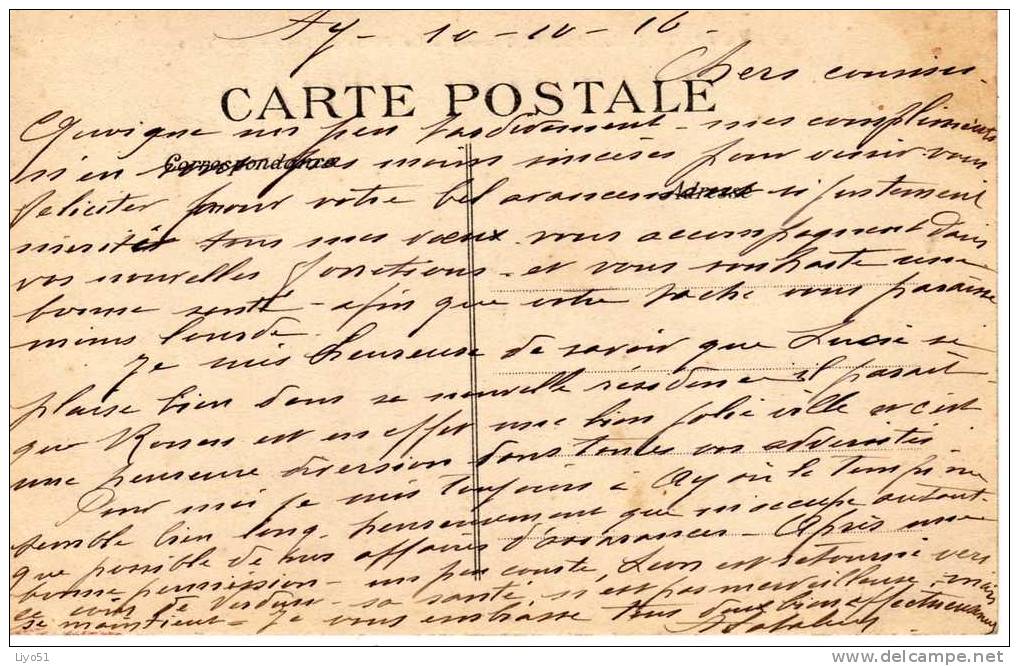 Ay - 10 - 10 - 16 -
Chers cousins
CARTE POSTALE
Quoique un peu tardivement - mes compliments
Correspondance
n'en sont pas moins sincères pour venir vous
Adresse
féliciter pour votre bel avancement si justement
mérité tous mes voeux vous accompagnent dans
vos nouvelles fonctions - et vous souhaite une
bonne santé - afin que votre tache vous paraisse
moins lourde -
Je suis heureuse de savoir que Lucie se
plaise bien dans sa nouvelle résidence il parait
que Rouen est en effet une bien jolie ville et c'est
une heureuse diversion dans toutes vos adversités
Pour moi je suis toujours à Ay où le temps me
semble bien long - heureusement que m'occupe autant
que possible de mes affaires d'assurances - Après une
bonne permission - un peu courte, Léon est retourné vers
ce coin de Verdun - sa santé n'est pas merveilleuse, mais
se maintient - je vous embrasse tous deux bien affectueusement
Liyo51
delcampe.net